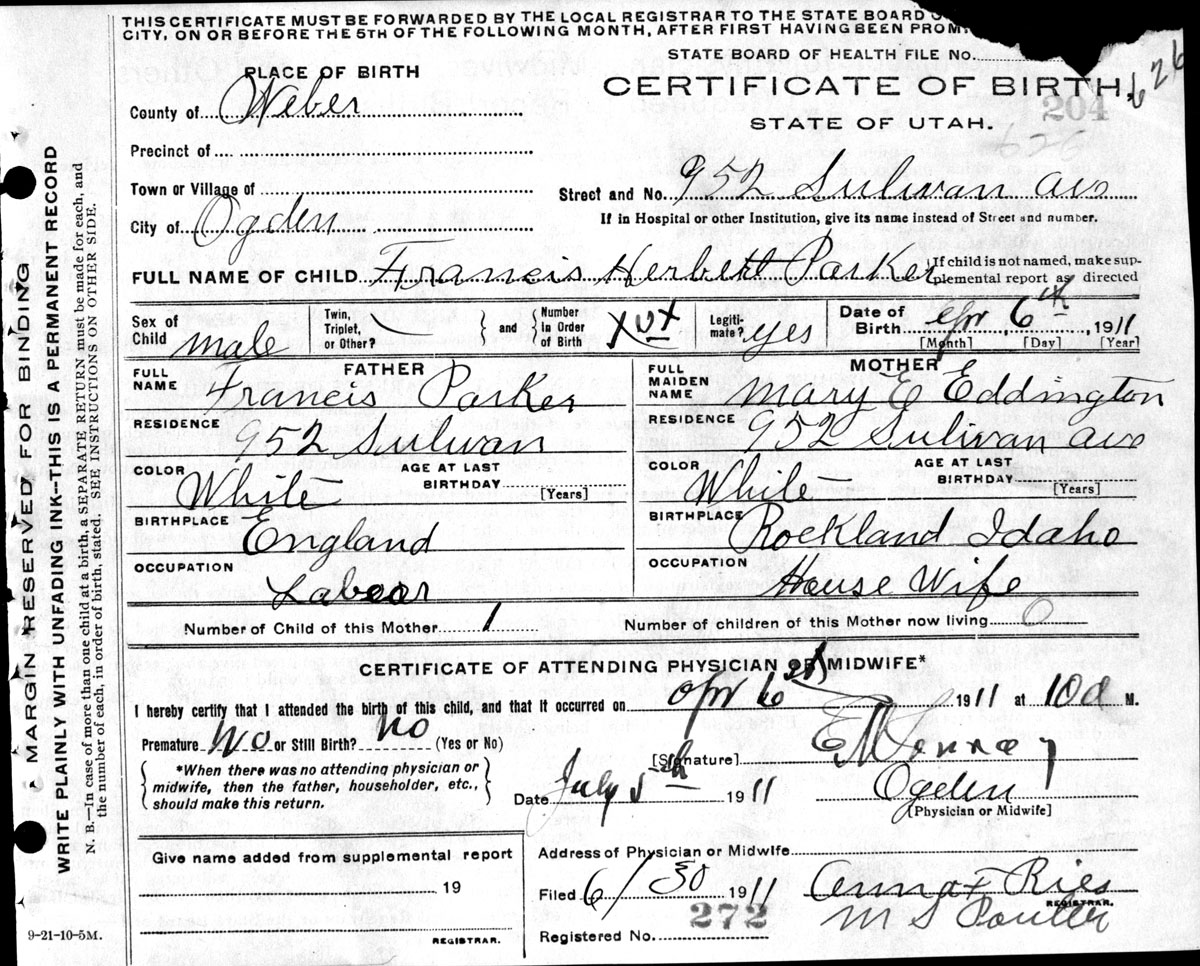 THIS CERTIFICATE MUST BE FORWARDED BY THE LOCAL REGISTRAR TO THE STATE BOARD
CITY, ON OR BEFORE THE 5TH OF THE FOLLOWING MONTH, AFTER FIRST HAVING BEEN
STATE BOARD OF HEALTH FILE No. 626
PLACE OF BIRTH
CERTIFICATE OF BIRTH
204
STATE OF UTAH.
626
County of Weber
Precinct of
Town or Village of
Street and No. 952 Sulivan ave
City of Ogden
If in Hospital or other Institution, give its name instead of Street and number.
FULL NAME OF CHILD Francis Herbert Parker
If child is not named, make sup-
plemental report as directed
Sex of Child male
Twin, Triplet, or Other?
and
Number In Order of Birth
Legiti-mate? yes
Date of Birth Apr 6th 1911
[Month] [Day] [Year]
FATHER
FULL NAME Francis Parker
RESIDENCE 952 Sulivan
COLOR White
AGE AT LAST BIRTHDAY
[Years]
BIRTHPLACE England
OCCUPATION Labeor
MOTHER
FULL MAIDEN NAME Mary E Eddington
RESIDENCE 952 Sulivan ave
COLOR White
AGE AT LAST BIRTHDAY
[Years]
BIRTHPLACE Rockland Idaho
OCCUPATION House Wife
Number of Child of this Mother 1
Number of children of this Mother now living 0
CERTIFICATE OF ATTENDING PHYSICIAN OR MIDWIFE*
I hereby certify that I attended the birth of this child, and that it occurred on Apr 6 1911 at 10 a M.
Premature No or Still Birth? No (Yes or No)
*When there was no attending physician or
midwife, then the father, householder, etc.,
should make this return.
[Signature]
Date July 5th 1911
Ogden
[Physician or Midwife]
Give name added from supplemental report
19
REGISTRAR.
Address of Physician or Midwife
Filed 6/30 1911
Anna F Ries
REGISTRAR.
M S Poulter
Registered No. 272
MARGIN RESERVED FOR BINDING
WRITE PLAINLY WITH UNFADING INK--THIS IS A PERMANENT RECORD
N. B.—In case of more than one child at a birth, a SEPARATE RETURN must be made for each, and
the number of each, in order of birth, stated. SEE INSTRUCTIONS ON OTHER SIDE.
9-21-10-5M.